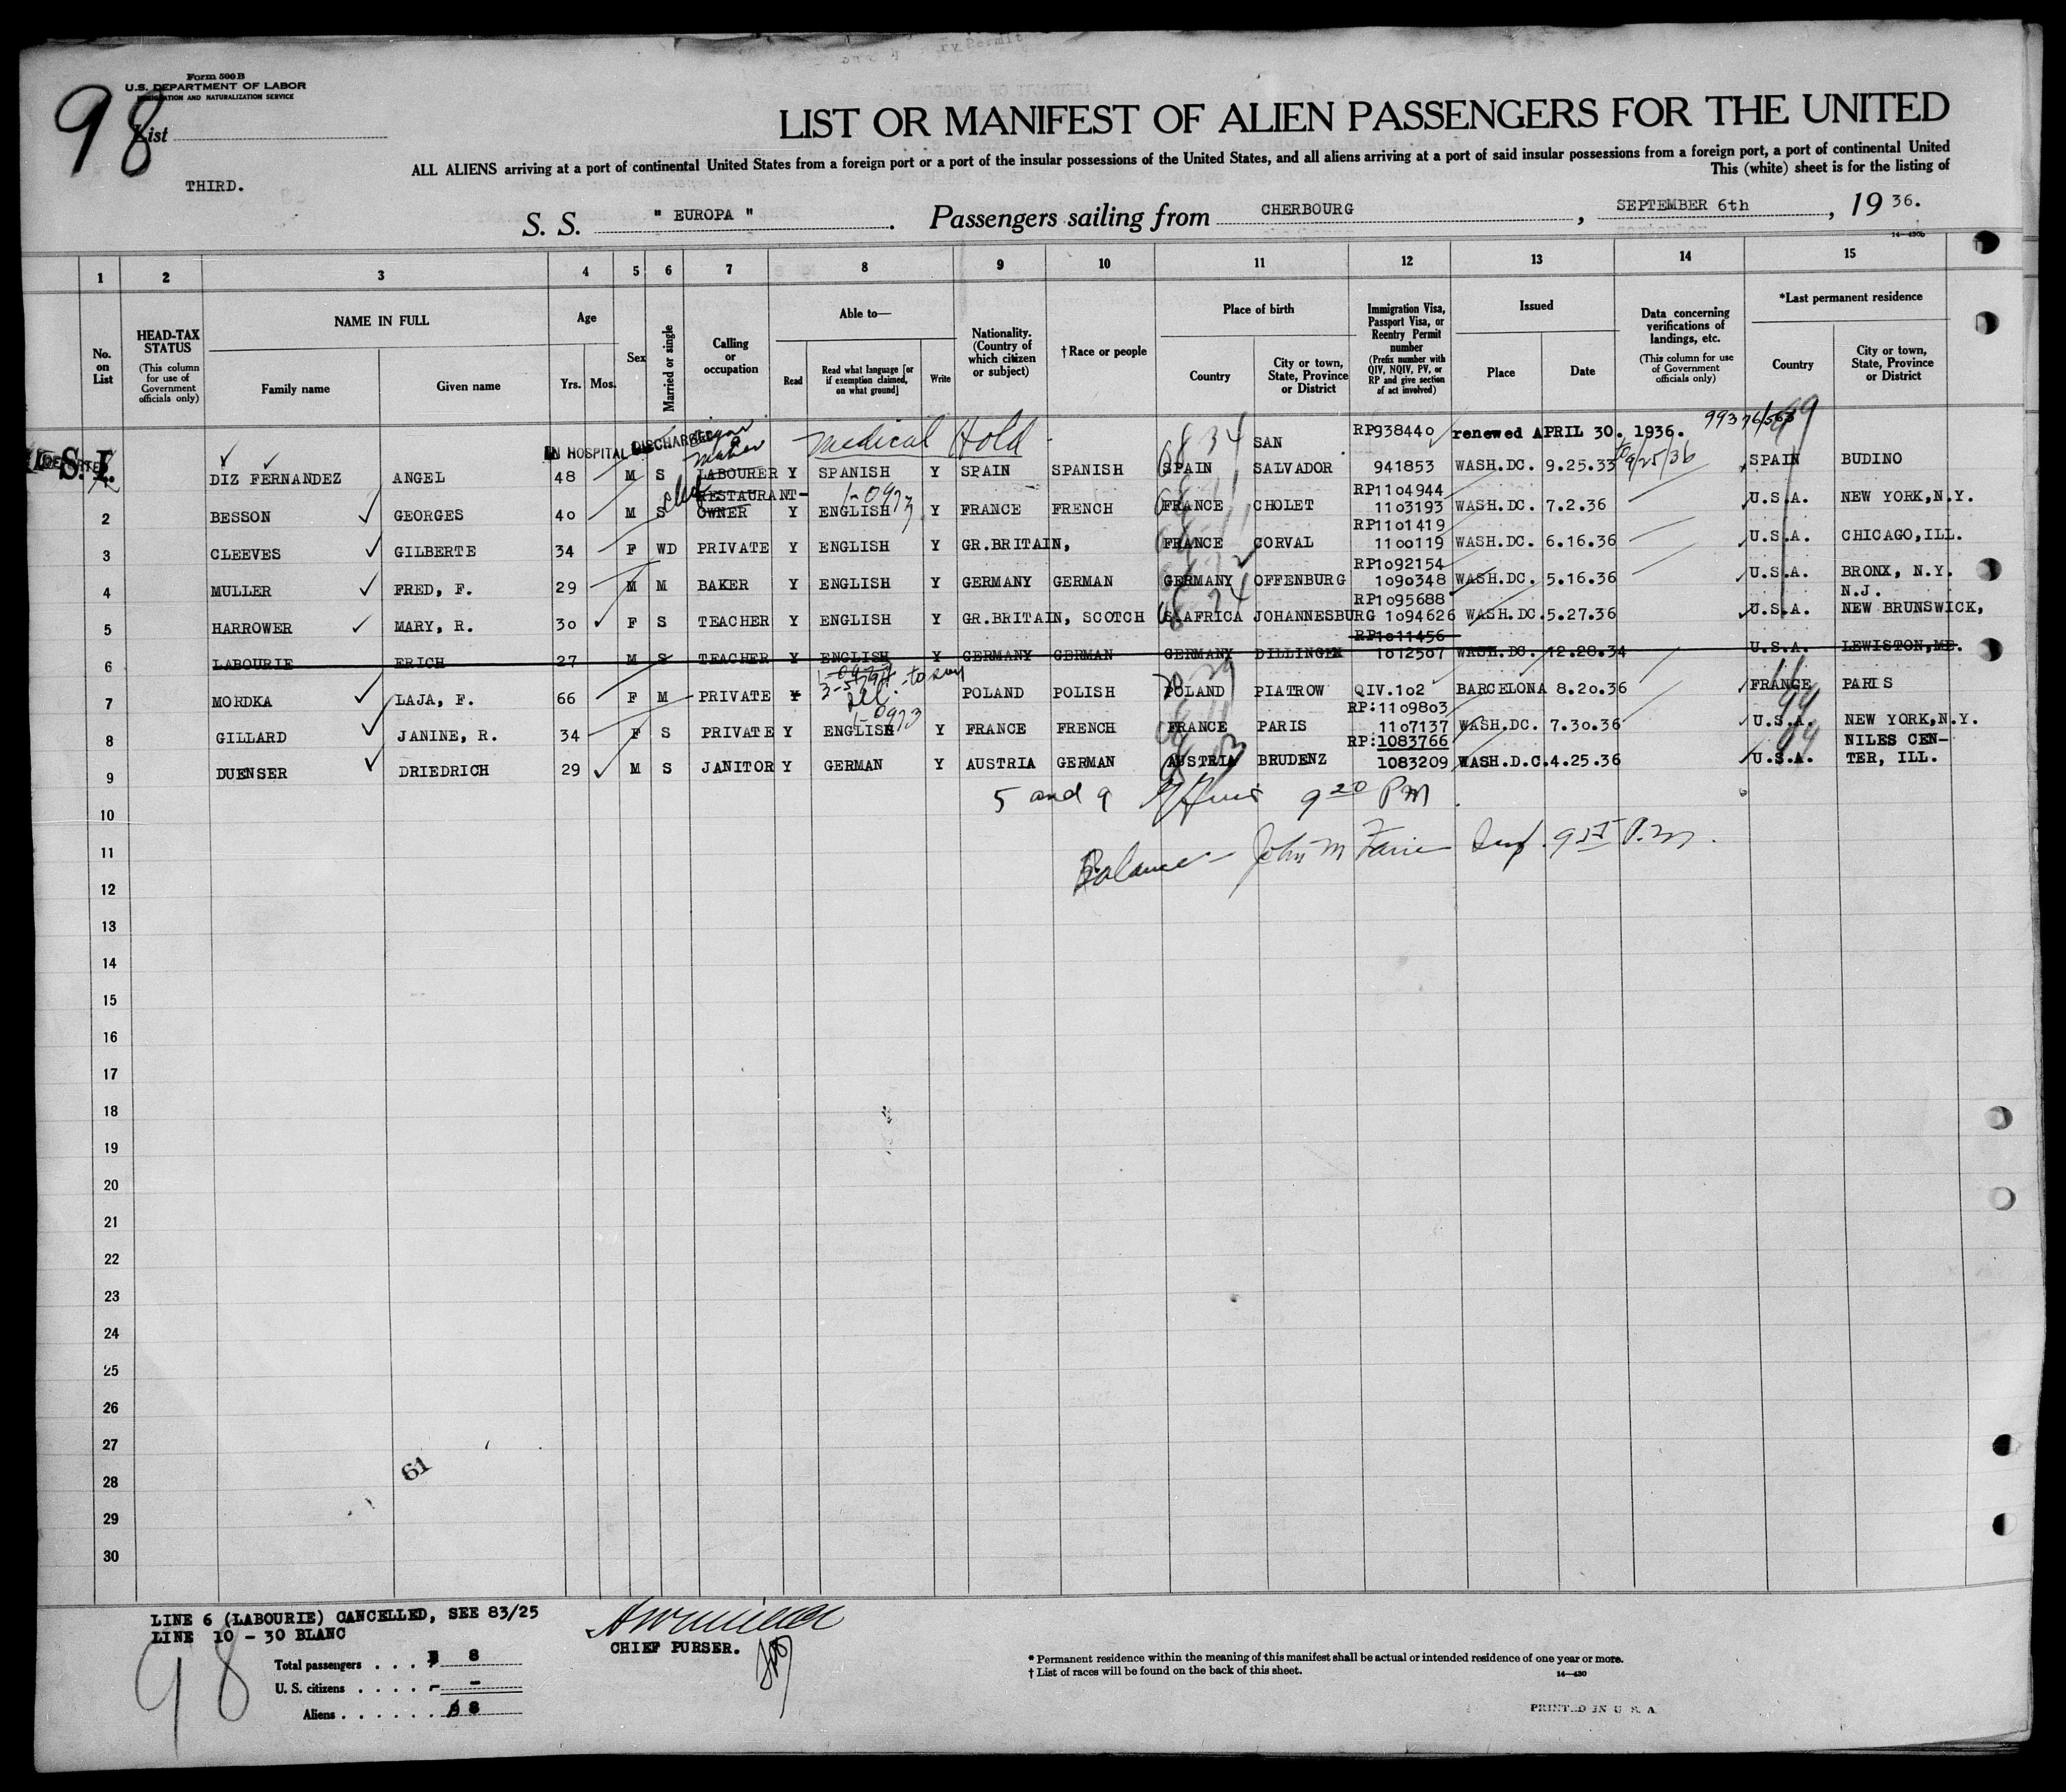 Form 500 B
U.S. DEPARTMENT OF LABOR
IMMIGRATION AND NATURALIZATION SERVICE
98
List
THIRD.
LIST OR MANIFEST OF ALIEN PASSENGERS FOR THE UNITED
ALL ALIENS arriving at a port of continental United States from a foreign port or a port of the insular possessions of the United States, and all aliens arriving at a port of said insular possessions from a foreign port, a port of continental United
This (white) sheet is for the listing of
S. S. " EUROPA ". Passengers sailing from CHERBOURG, SEPTEMBER 6th, 19 36.
14—430b
1 2 3 4 5 6 7 8 9 10 11 12 13 14 15
No. on List
HEAD-TAX STATUS (This column for use of Government officials only)
NAME IN FULL
Family name
Given name
Age
Yrs. Mos.
Sex
Married or single
Calling or occupation
Able to—
Read
Read what language [or if exemption claimed, on what ground]
Write
Nationality. (Country of which citizen or subject)
†Race or people
Place of birth
Country
City or town, State, Province or District
Immigration Visa, Passport Visa, or Reentry Permit number (Prefix number with QIV, NQIV, PV, or RP and give section of act involved)
Issued
Place
Date
Data concerning verifications of landings, etc. (This column for use of Government officials only)
*Last permanent residence
Country
City or town, State, Province or District
99376/563
IN HOSPITAL DISCHARGED
Medical Hold
SAN RP938440 renewed APRIL 30. 1936.
S.I. DIZ FERNANDEZ ANGEL 48 M S LABOURER Y SPANISH Y SPAIN SPANISH SPAIN SALVADOR 941853 WASH.DC. 9.25.33 SPAIN BUDINO
to 9/25/36
RESTAURANT- 1-0973 RP1104944
2 BESSON GEORGES 40 M S OWNER Y ENGLISH Y FRANCE FRENCH FRANCE CHOLET 1103193 WASH.DC. 7.2.36 U.S.A. NEW YORK,N.Y.
RP1101419
3 CLEEVES GILBERTE 34 F WD PRIVATE Y ENGLISH Y GR.BRITAIN, FRANCE CORVAL 1100119 WASH.DC. 6.16.36 U.S.A. CHICAGO,ILL.
RP1092154
4 MULLER FRED, F. 29 M M BAKER Y ENGLISH Y GERMANY GERMAN GERMANY OFFENBURG 1090348 WASH.DC. 5.16.36 U.S.A. BRONX, N.Y.
RP1095688 N.J.
5 HARROWER MARY, R. 30 F S TEACHER Y ENGLISH Y GR.BRITAIN, SCOTCH S.AFRICA JOHANNESBURG 1094626 WASH.DC. 5.27.36 U.S.A. NEW BRUNSWICK,
RP1011456
6 LABOURIE ERICH 27 M S TEACHER Y ENGLISH Y GERMANY GERMAN GERMANY DILLINGEN 1012507 WASH.DC. 12.28.34 U.S.A. LEWISTON,ME.
7 MORDKA LAJA, F. 66 F M PRIVATE POLAND POLISH POLAND PIATROW QIV.102 BARCELONA 8.20.36 FRANCE PARIS
1-0973 RP:1109803
8 GILLARD JANINE, R. 34 F S PRIVATE Y ENGLISH Y FRANCE FRENCH FRANCE PARIS 1107137 WASH.DC. 7.30.36 U.S.A. NEW YORK,N.Y.
RP:1083766 NILES CEN-
9 DUENSER DRIEDRICH 29 M S JANITOR Y GERMAN Y AUSTRIA GERMAN AUSTRIA BRUDENZ 1083209 WASH.D.C. 4.25.36 U.S.A. TER, ILL.
5 and 9 9 20 PM
10
Balance John M
11
12
13
14
15
16
17
18
19
20
21
22
23
24
25
26
27
28
29
30
61
LINE 6 (LABOURIE) CANCELLED, SEE 83/25
LINE 10 - 30 BLANC
98
Total passengers . . . 8
U. S. citizens . . . . - -
Aliens . . . . . . 8
CHIEF PURSER.
* Permanent residence within the meaning of this manifest shall be actual or intended residence of one year or more.
† List of races will be found on the back of this sheet.
14—430
PRINTED IN U S A